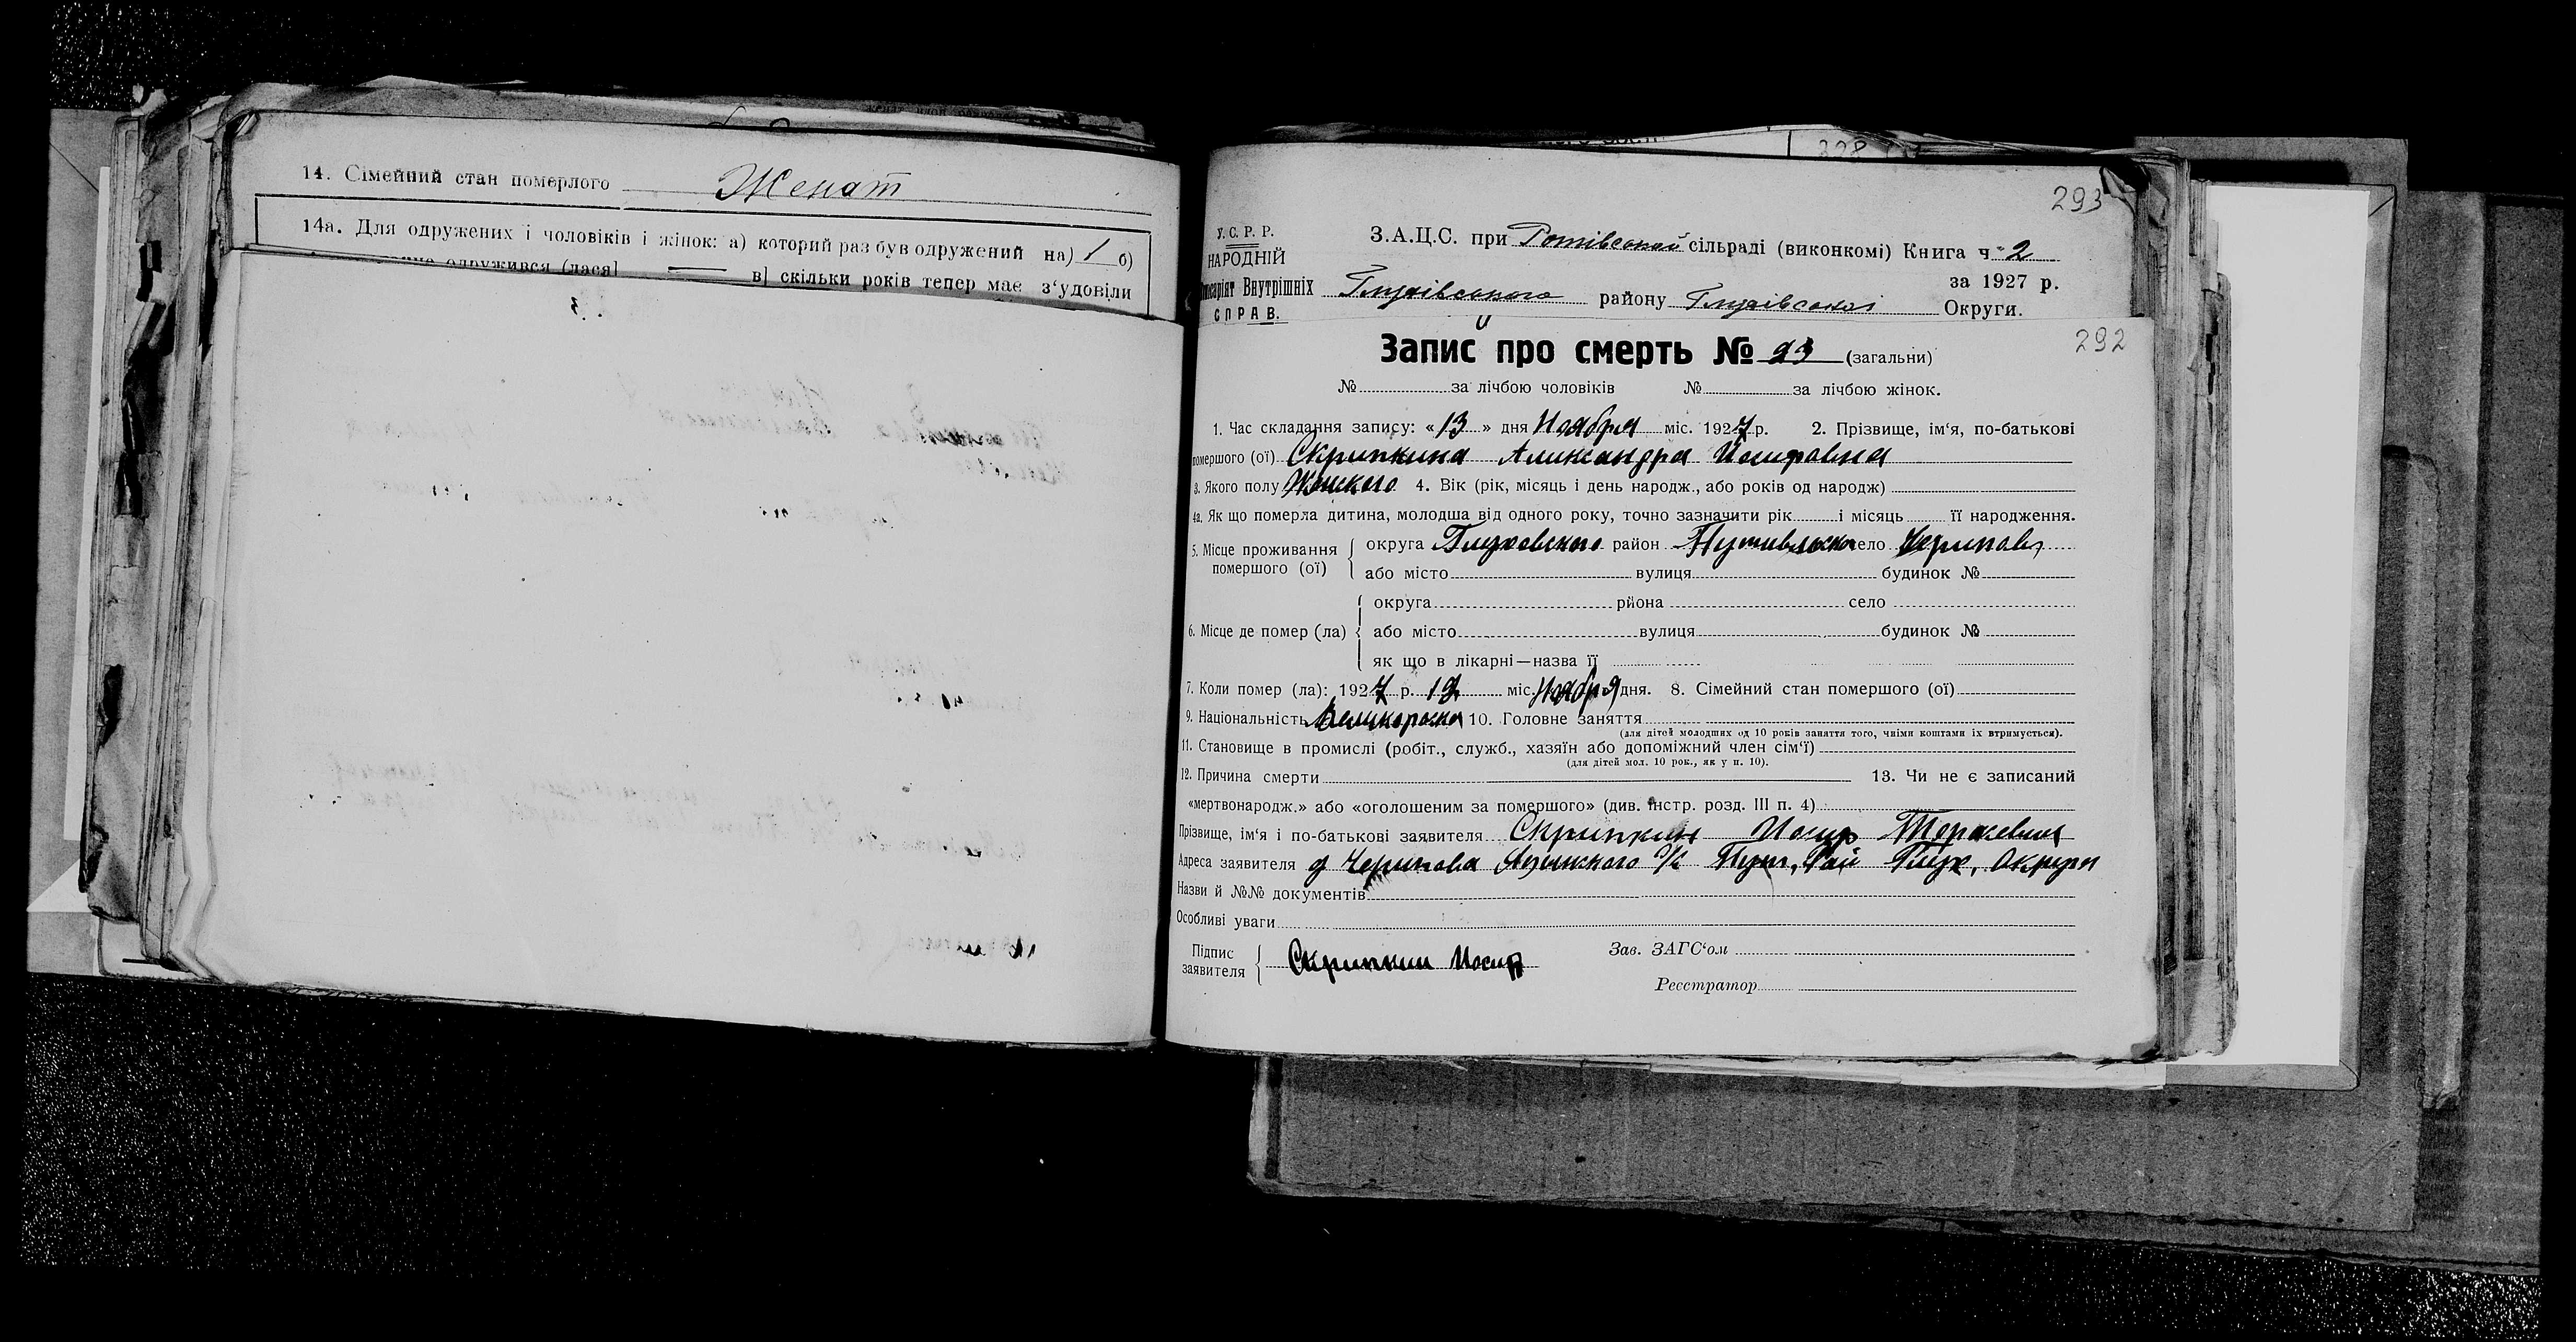 14. Сімейний стан померлого Женат
14а. Для одружених і чоловіків і жінок: а) которий раз був одружений на) 1 б)
одружився (лася) — в) скільки років тепер має з‘удовіли
293
У. С. Р. Р.
НАРОДНІЙ
Внутрішніх
СПРАВ.
З.А.Ц.С. при сільраді (виконкомі) Книга ч 2
за 1927 р.
Глухівського району Глухівської Округи.
292
Запис про смерть № 23 (загальни)
№ за лічбою чоловіків № за лічбою жінок.
1. Час складання запису: «13» дня Ноября міс. 1927 р. 2. Прізвище, ім‘я, по-батькові
помершого (ої) Скрипкина Александра Иосифовна
3. Якого полу Женского 4. Вік (рік, місяць і день народж., або років од народж)
4а. Як що померла дитина, молодша від одного року, точно зазначити рік і місяць її народження.
5. Місце проживання помершого (ої) округа Глуховского район Путивльско село Черепова
або місто вулиця будинок №
6. Місце де помер (ла) округа района село
або місто вулиця будинок №
як що в лікарні—назва її
7. Коли помер (ла): 1927 р. 12 міс. Ноября дня. 8. Сімейний стан помершого (ої)
9. Національність 10. Головне заняття
(для дітей молодших од 10 років заняття того, чиїми коштами їх втримується).
11. Становище в промислі (робіт., служб., хазяїн або допоміжний член сім‘ї)
(для дітей мол. 10 рок., як у п. 10).
12. Причина смерти 13. Чи не є записаний
«мертвонародж.» або «оголошеним за помершого» (див. інстр. розд. III п. 4)
Прізвище, ім‘я і по-батькові заявителя Скрипкин Иосиф
Адреса заявителя д Черепова с/с Пут. Рай Глух. Округи
Назви й №№ документів
Особливі уваги
Підпис заявителя Скрипкин Иосиф
Зав. ЗАГС‘ом
Реєстратор